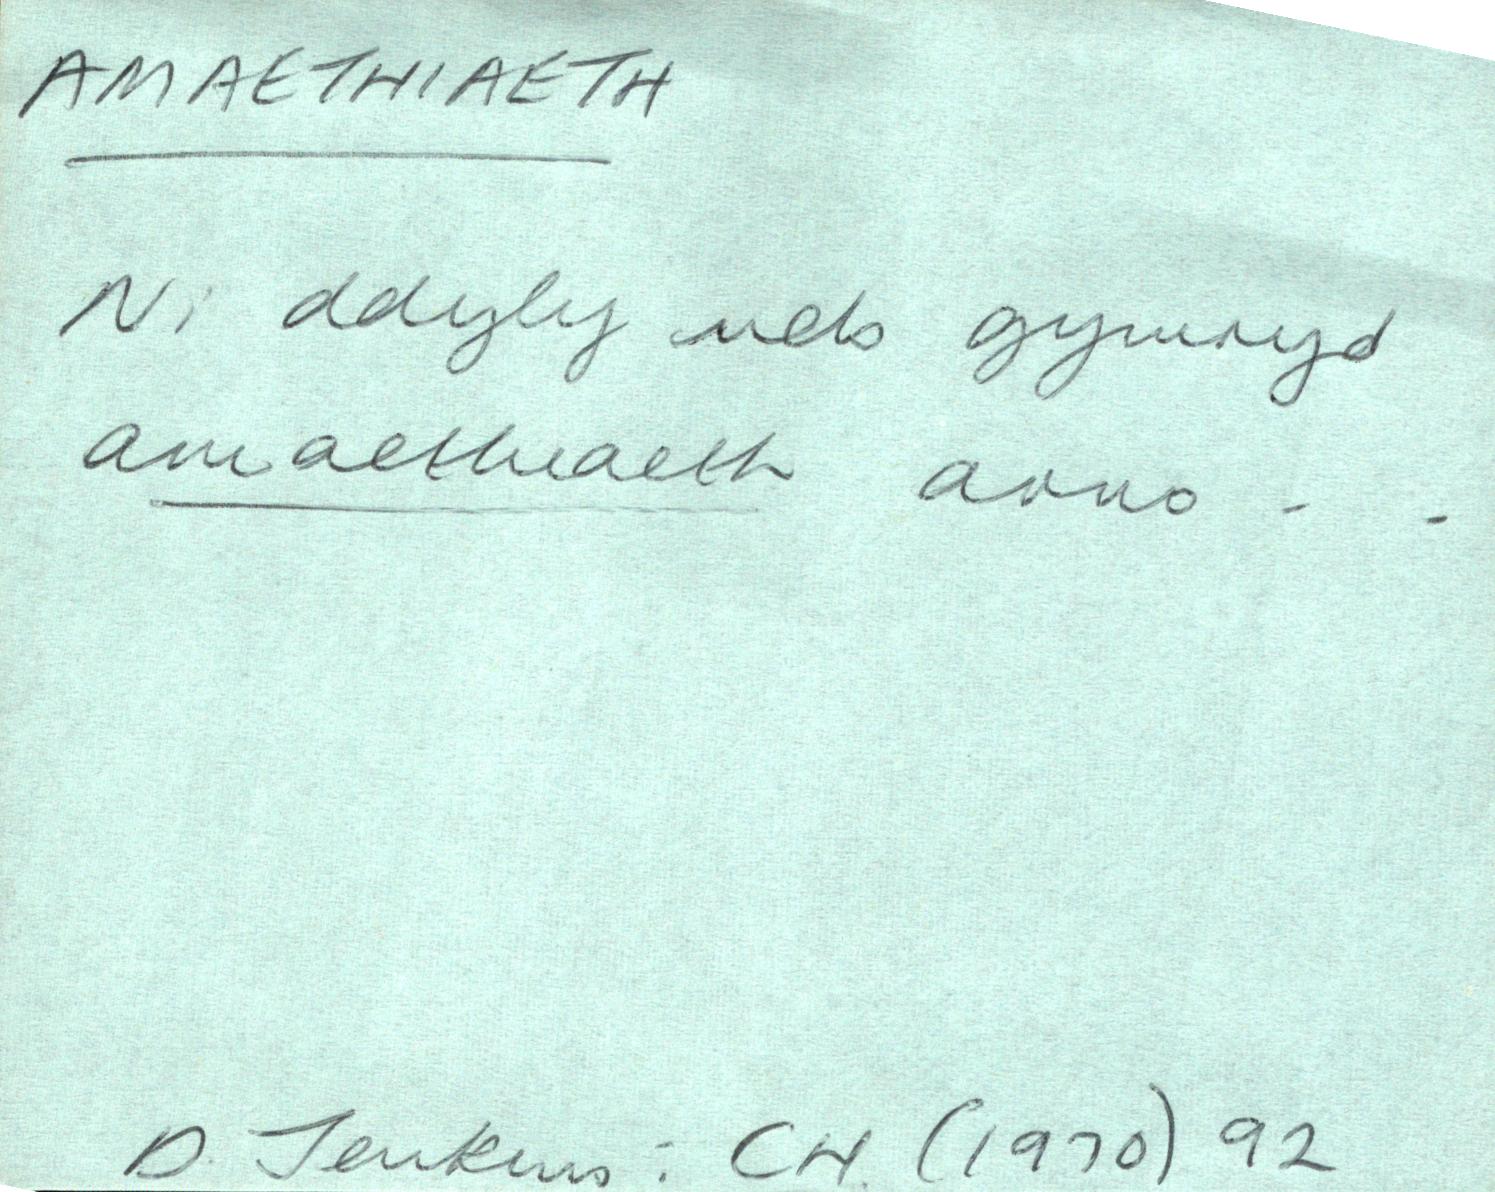 AMAETHIAETH
Ni ddyly neb gymryd
amaethiaeth arno - -
D. Jenkins: CH. (1970) 92